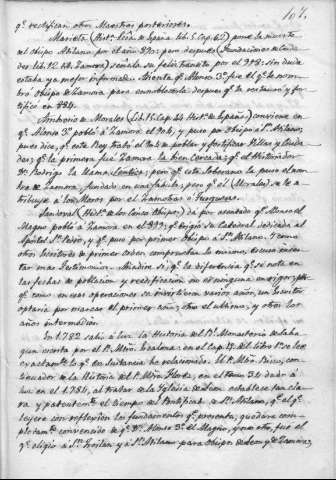 107.
qᵉ rectifican otros Maestros posteriores.
Marieta (Hist. Ecca. de España lib. 5 Cap. 62) pone la muerte
del obispo Atilano por el año 890: pero despues (Fundaciones de Ciuda
des lib. 22 fol. Zamora) señala su feliz transito por el 998: sin duda
estaba ya mejor informado. Sienta qᵉ Alonso 3º fue el qᵉ le nom
bró obispo de Zamora para ennoblecerla despues qᵉ la restauró y for
tificó en 884.
Ambrosio de Morales (Lib. 15. Cap. 44 Histª de España) conviene en
qᵉ Alonso 3º pobló á Zamora el 904, y puso por obispo á Sⁿ Atilano;
pues dice, qᵉ este Rey trató el 904 de poblar y fortificar Villas y Ciuda
des; qᵉ la primera fue Zamora la bien cercada; qᵉ el Historiador
Dⁿ Rodrigo la llama Sentica; pero qᵉ este Soberano la puso el nom
bre de Zamora, fundado en una fabula; pero qᵉ él (Morales) se le a
tribuye á los Moros por el Zamobar ó turquesas.
Sandoval (Histª de los Cinco Obispos) da por asentado qᵉ Alonso el
Magno pobló á Zamora en el 897; qᵉ erigió su Catedral dedicada al
Apóstol Sⁿ Pedro, y qᵉ puso por primer Obispo á Sⁿ Atilano. Y como
otros Escritores de primer orden comprueban lo mismo, escuso inser
tar mas testimonios. Añadiré si, qᵉ la diferencia qᵉ se nota en
las fechas de poblacion y reedificacion no es ninguna en rigor; pr
qᵉ como en esas operaciones se invirtieron varios años, un Escritor
optaria por marcar el primer año; otro el ultimo; y otros los
años intermedios.
En 1782 salió á luz la Historia del Rˡ Monasterio de Saha
gun escrita por el P. Mtro. Escalona: en el cap. 15 del Libro 1º se lee
exactamte lo qᵉ en sustancia he relacionado. El P. Mtro. Risco, con
tinuador de la Historia del P. Mtro. Florez, en el tomo 34 dado á
luz en el 1784, al tratar de la Yglesia de Leon establece tan cla
ra y patentemte el tiempo del Pontificado de Sⁿ Atilano, qᵉ el qᵉ
lejere con reflexion los fundamentos qᵉ presenta, quedara com
pletamte convencido de qᵉ Dⁿ Alonso 3º el Magno, y no otro, fue el
qᵉ eligió á Sⁿ Froilan y á Sⁿ Atilano para obispos de Leon y de Zamora;